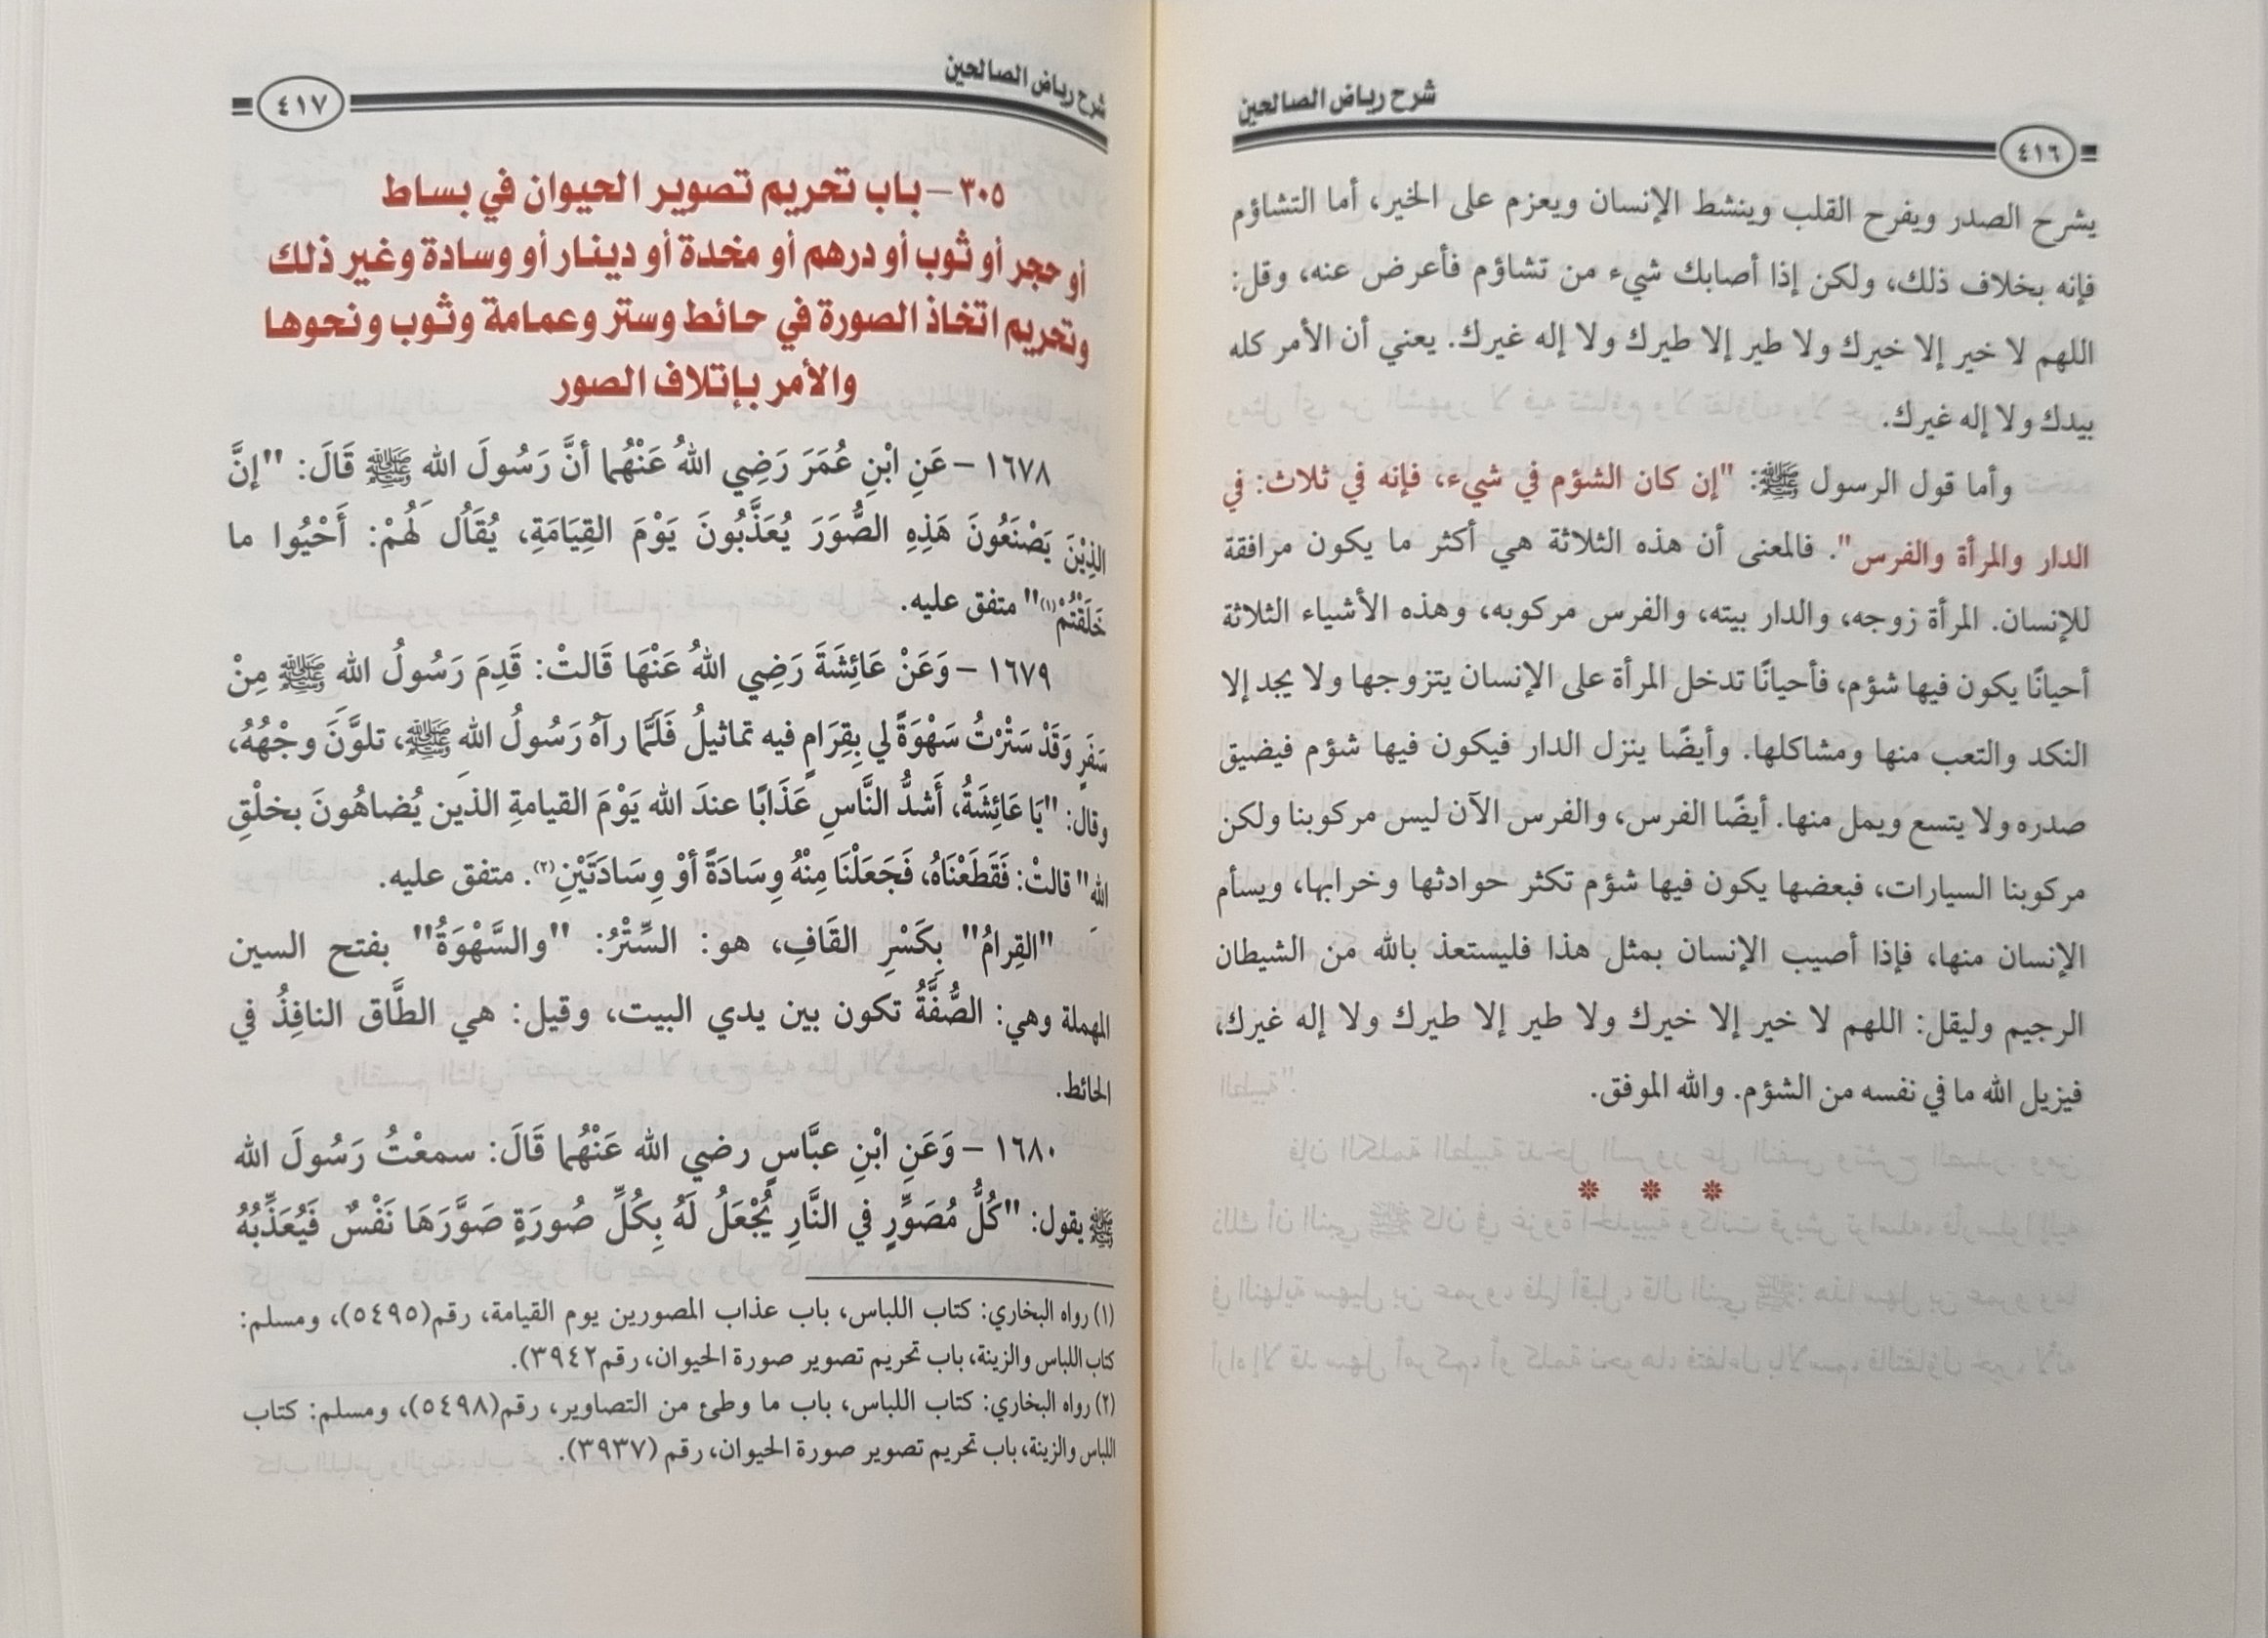 شرح رياض الصالحين
٤١٦
يشرح الصدر ويفرح القلب وينشط الإنسان ويعزم على الخير، أما التشاؤم
فإنه بخلاف ذلك، ولكن إذا أصابك شيء من تشاؤم فأعرض عنه، وقل:
اللهم لا خير إلا خيرك ولا طير إلا طيرك ولا إله غيرك. يعني أن الأمر كله
بيدك ولا إله غيرك.
وأما قول الرسول ﷺ: "إن كان الشؤم في شيء، فإنه في ثلاث: في
الدار والمرأة والفرس". فالمعنى أن هذه الثلاثة هي أكثر ما يكون مرافقة
للإنسان. المرأة زوجه، والدار بيته، والفرس مركوبه، وهذه الأشياء الثلاثة
أحيانًا يكون فيها شؤم، فأحيانًا تدخل المرأة على الإنسان يتزوجها ولا يجد إلا
النكد والتعب منها ومشاكلها. وأيضًا ينزل الدار فيكون فيها شؤم فيضيق
صدره ولا يتسع ويمل منها. أيضًا الفرس، والفرس الآن ليس مركوبنا ولكن
مركوبنا السيارات، فبعضها يكون فيها شؤم تكثر حوادثها وخرابها، ويسأم
الإنسان منها، فإذا أصيب الإنسان بمثل هذا فليستعذ بالله من الشيطان
الرجيم وليقل: اللهم لا خير إلا خيرك ولا طير إلا طيرك ولا إله غيرك،
فيزيل الله ما في نفسه من الشؤم. والله الموفق.
* * *
شرح رياض الصالحين
٤١٧
٣٠٥ – باب تحريم تصوير الحيوان في بساط
أو حجر أو ثوب أو درهم أو مخدة أو دينار أو وسادة وغير ذلك
وتحريم اتخاذ الصورة في حائط وستر وعمامة وثوب ونحوها
والأمر بإتلاف الصور
١٦٧٨ – عَنِ ابْنِ عُمَرَ رَضِي اللهُ عَنْهُما أنَّ رَسُولَ الله ﷺ قَالَ: "إنَّ
الذِيْنَ يَصْنَعُونَ هَذِهِ الصُّوَرَ يُعَذَّبُونَ يَوْمَ القِيَامَةِ، يُقَالُ لَهُمْ: أَحْيُوا ما
خَلَقْتُمْ(١)" متفق عليه.
١٦٧٩ – وَعَنْ عَائِشَةَ رَضِي اللهُ عَنْهَا قَالتْ: قَدِمَ رَسُولُ الله ﷺ مِنْ
سَفَرٍ وَقَدْ سَتَرْتُ سَهْوَةً لي بِقِرَامٍ فيه تماثيلُ فَلَمَّا رآهُ رَسُولُ الله ﷺ، تلوَّنَ وجْهُهُ،
وقال: "يَا عَائِشَةُ، أَشدُّ النَّاسِ عَذَابًا عندَ الله يَوْمَ القيامةِ الذَين يُضاهُونَ بخلْقِ
اللهِ" قالتْ: فَقَطَعْنَاهُ، فَجَعَلْنَا مِنْهُ وِسَادَةً أوْ وِسَادَتَيْنِ(٢). متفق عليه.
"القِرامُ" بِكَسْرِ القَافِ، هو: السِّتْرُ: "والسَّهْوَةُ" بفتح السين
المهملة وهي: الصُّفَّةُ تكون بين يدي البيت، وقيل: هي الطَّاق النافِذُ في
الحائط.
١٦٨٠ – وَعَنِ ابْنِ عبَّاسٍ رضي الله عَنْهُما قَالَ: سمعْتُ رَسُولَ الله
ﷺ يقول: "كُلُّ مُصَوِّرٍ في النَّارِ يُجْعَلُ لَهُ بِكُلِّ صُورَةٍ صَوَّرَهَا نَفْسٌ فَيُعَذِّبُهُ
(١) رواه البخاري: كتاب اللباس، باب عذاب المصورين يوم القيامة، رقم(٥٤٩٥)، ومسلم:
كتاب اللباس والزينة، باب تحريم تصوير صورة الحيوان، رقم٣٩٤٢).
(٢) رواه البخاري: كتاب اللباس، باب ما وطئ من التصاوير، رقم(٥٤٩٨)، ومسلم: كتاب
اللباس والزينة، باب تحريم تصوير صورة الحيوان، رقم (٣٩٣٧).